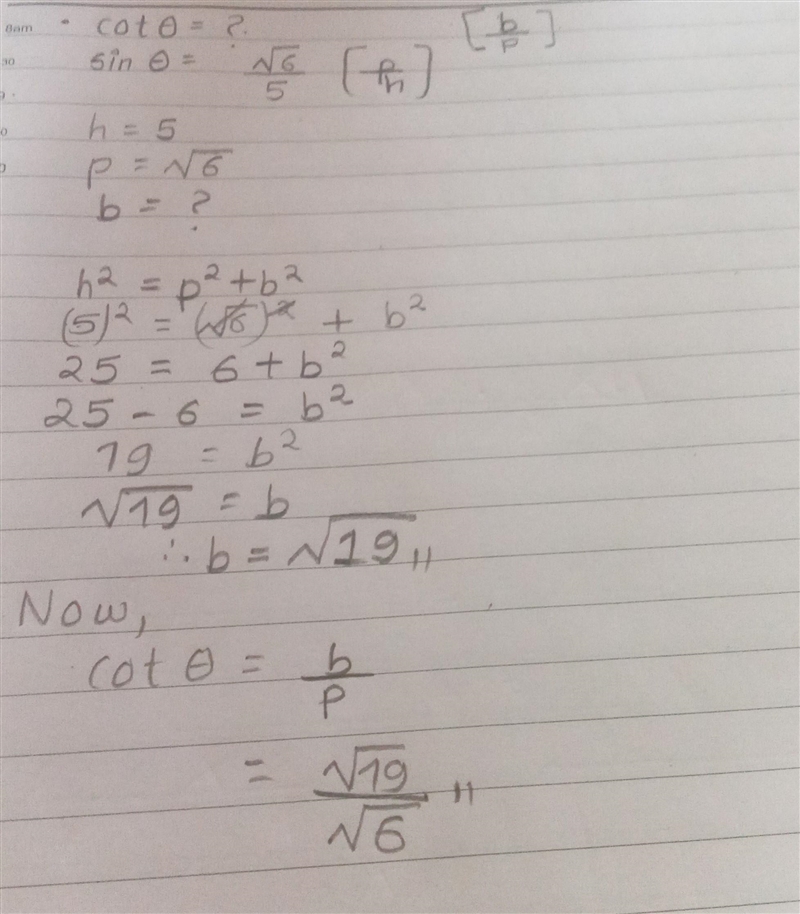 8am • cot θ = ? [b/p]
30 sin θ = √6/5 [p/h]
h = 5
p = √6
b = ?
h² = p² + b²
(5)² = (√6)² + b²
25 = 6 + b²
25 - 6 = b²
19 = b²
√19 = b
∴ b = √19 ,,
Now,
cot θ = b/p
= √19/√6 ,,